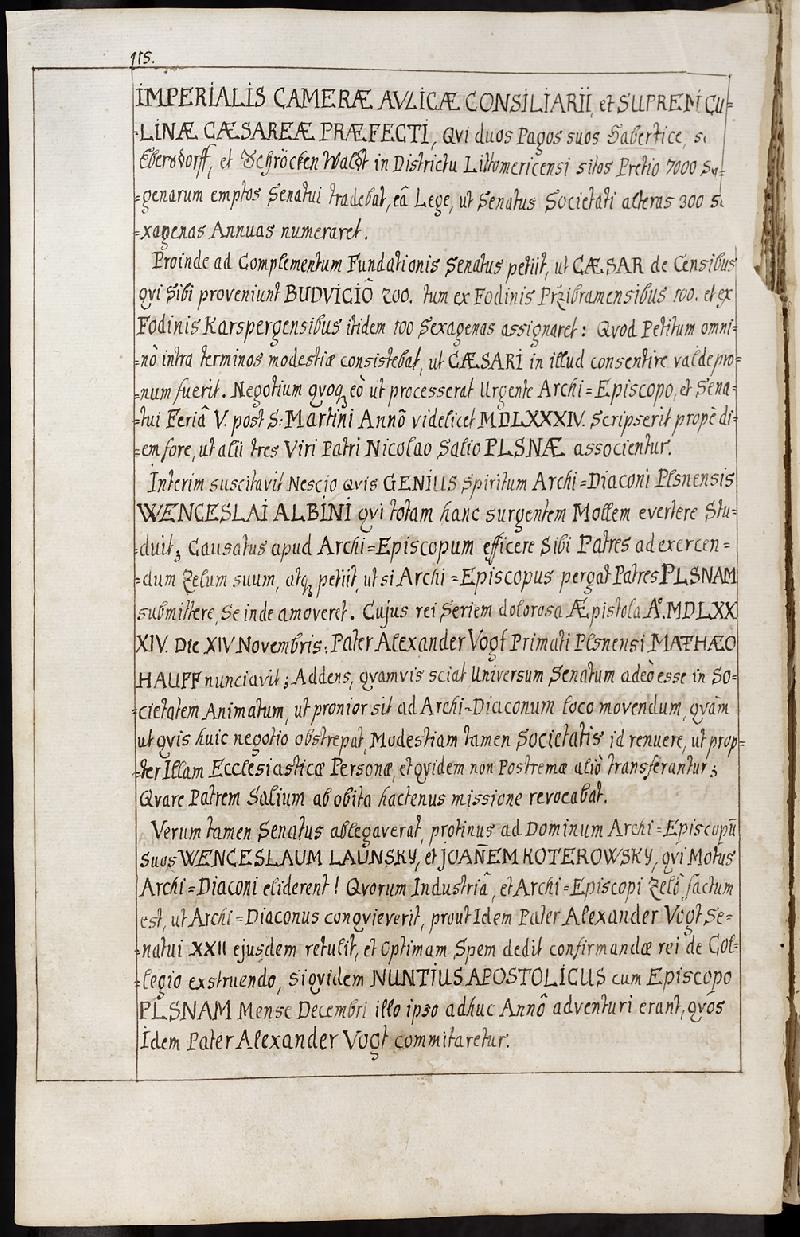 115.
IMPERIALIS CAMERÆ AVLICÆ CONSILIARII, et SUPREMI CU=
=LINÆ CÆSAREÆ PRÆFECTI, Qvi duos Pagos suos Sabertice,
Ebersdorff, et Schröcken Waldt in Districtu Littomericensi sitos Pretio 7000
=genarum emptos Senatui tradebat, eâ Lege, ut Senatus Societati alteras 300
=xagenas Annuas numeraret.
Proinde ad Complementum Fundationis Senatus petiit, ut CÆSAR de Censibus
qvi Sibi proveniunt BUDVICIÔ 200. tum ex Fodinis Przibramensibus 100. et ex
Fodinis Karspergensibus itidem 100 Sexagenas assignaret: Qvod Petitum omni=
=nô intra terminos modestiæ consistebat, ut CÆSARI in illud consentire valde pro=
=num fuerit. Negotium qvoq eô ut processerat Urgente Archi=Episcopo, et Sena=
=tui Feriâ V. post S. Martini Annô videlicet MDLXXXIV. Scripserit propè di=
=em fore, ut alii tres Viri Patri Nicolao Salio PLSNÆ associentur.
Interim suscitavit Nescio qvis GENIUS Spiritum Archi=Diaconi Plsnensis
WENCESLAI ALBINI qvi totam hanc surgentem Mollem evertere Stu=
=duit; Causatus apud Archi=Episcopum efficere Sibi Patres ad exercen=
=dum Zelum suum, atq petiit, ut si Archi=Episcopus pergat Patres PLSNAM
submittere, Se inde amoveret. Cujus rei Seriem dolorosa Æpistola A. MDLXX
XIV. Die XIV Novembris, Pater Alexander Vogt Primati Plsnensi MATHÆO
HAUFF nunciavit; Addens, qvamvis sciat Universum Senatum adeò esse in So=
=cietatem Animatum, ut pronior sit ad Archi=Diaconum loco movendum, qvàm
ut qvis huic negotio obstrepat, Modestiam tamen Societatis id renuere, ut prop=
=ter Illam Ecclesiasticæ Personæ, et qvidem non Postremæ aliò transferantur;
Qvare Patrem Salium ab obita hactenus missione revocabat.
Verum tamen Senatus ablegaverat, protinus ad Dominum Archi=Episcopū
Suos WENCESLAUM LAUNSKY, et JOAÑEM KOTEROWSKY, qvi Motus
Archi=Diaconi eliderent! Qvorum Industriâ, et Archi=Episcopi Zelô factum
est, ut Archi=Diaconus conqvieverit, prout Idem Pater Alexander Vogt Se=
=natui XXII ejusdem retulit, et Optimam Spem dedit confirmandæ rei de Col=
=legio exstruendo, Siqvidem NUNTIUS APOSTOLICUS cum Episcopo
PLSNAM Mense Decembri illo ipso adhuc Annô adventuri erant, qvos
Idem Pater Alexander Vogt commitaretur.